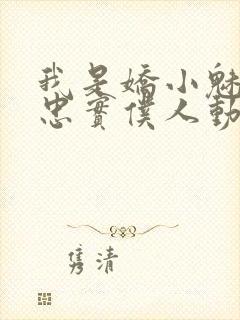 我是嬌小魅
忠實僕人動
雋清